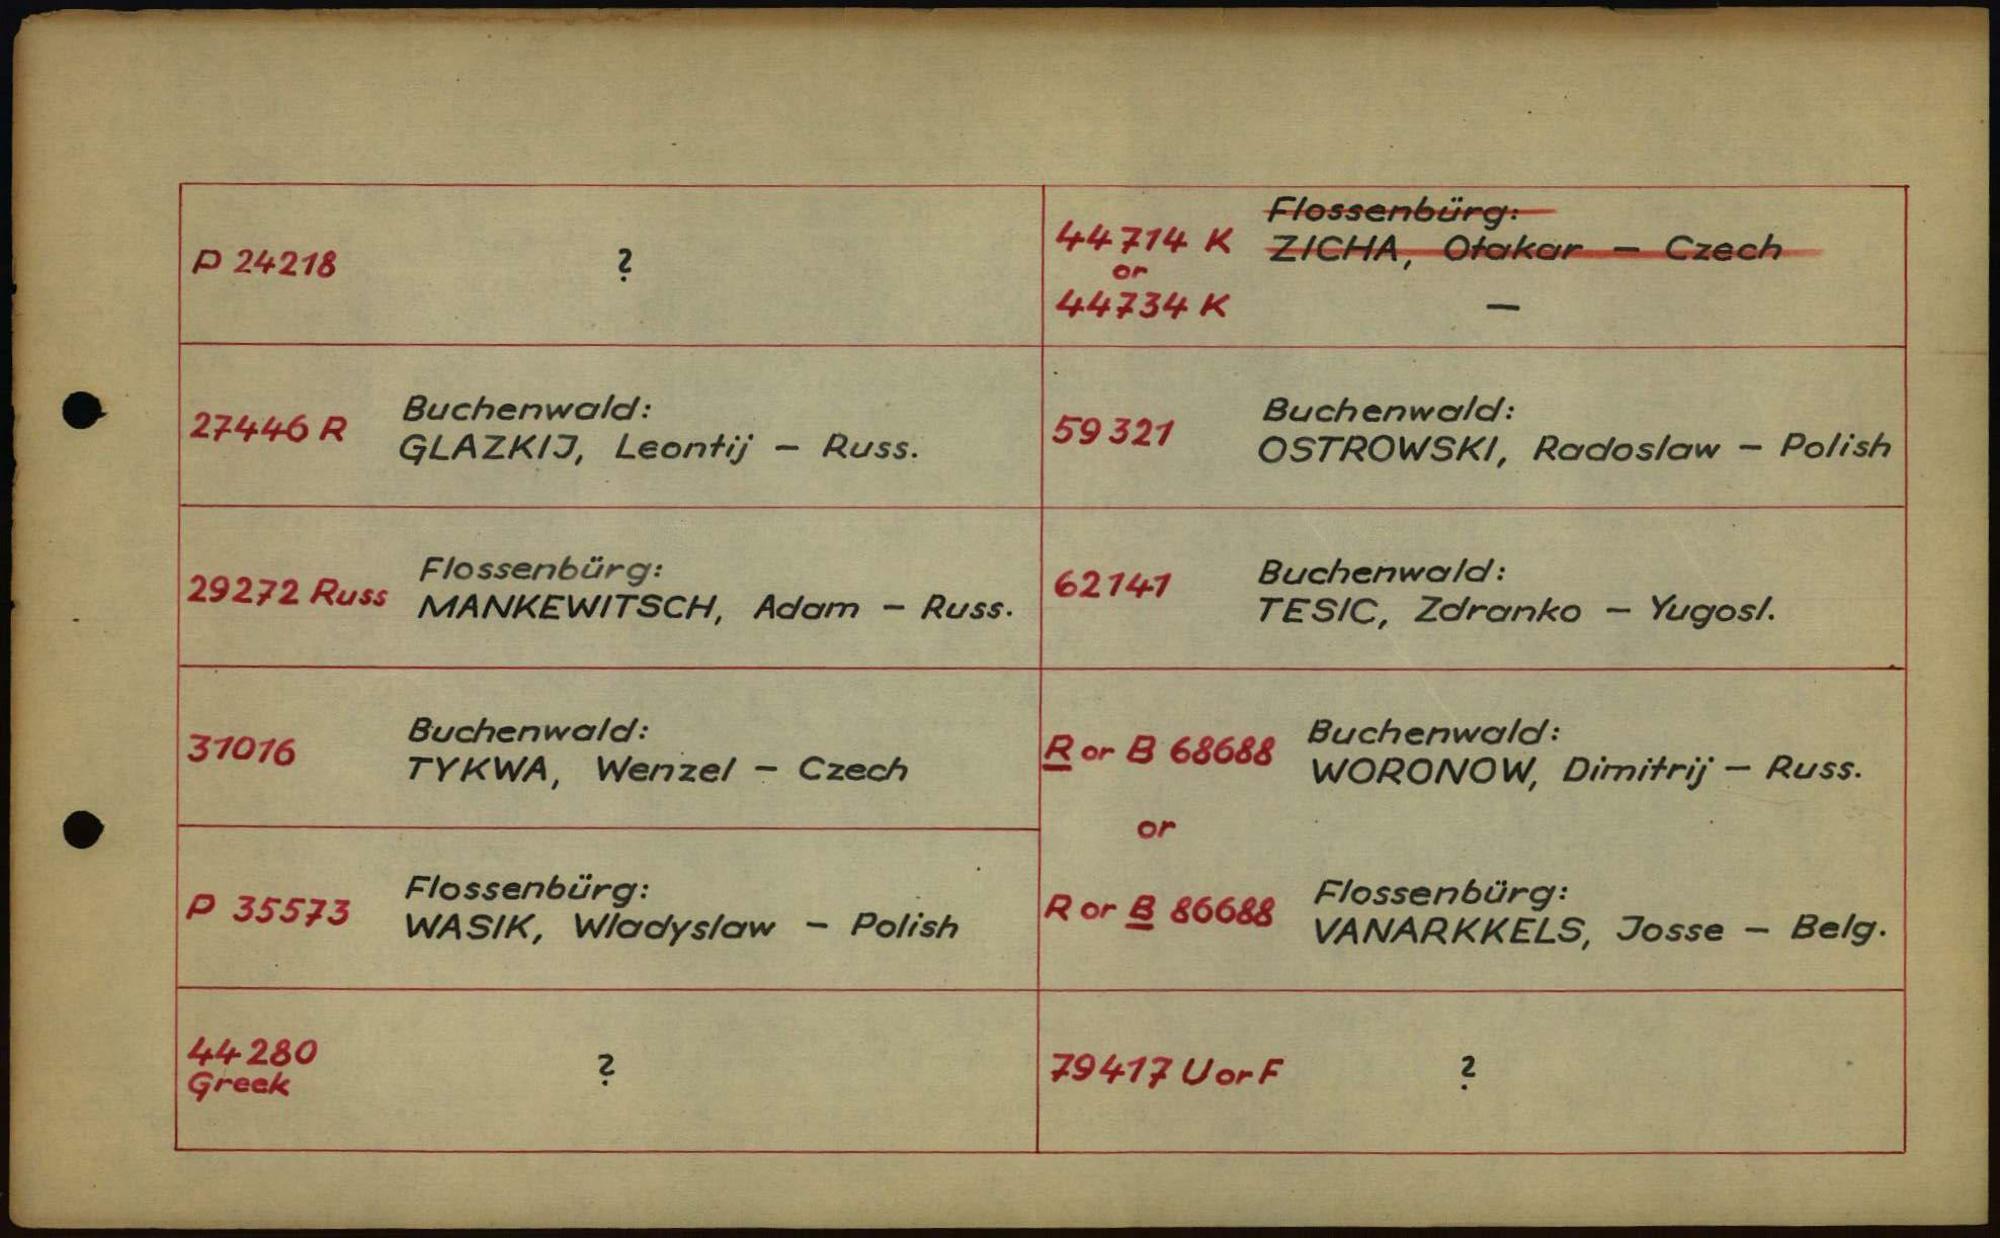 P 24218 ?
27446 R Buchenwald:
GLAZKIJ, Leontij – Russ.
29272 Russ Flossenbürg:
MANKEWITSCH, Adam – Russ.
31016 Buchenwald:
TYKWA, Wenzel – Czech
P 35573 Flossenbürg:
WASIK, Wladyslaw – Polish
44280
Greek ?
44714 K Flossenbürg:
ZICHA, Otakar – Czech
or
44734 K –
59321 Buchenwald:
OSTROWSKI, Radoslaw – Polish
62141 Buchenwald:
TESIC, Zdranko – Yugosl.
R or B 68688 Buchenwald:
WORONOW, Dimitrij – Russ.
or
R or B 86688 Flossenbürg:
VANARKKELS, Josse – Belg.
79417 U or F ?